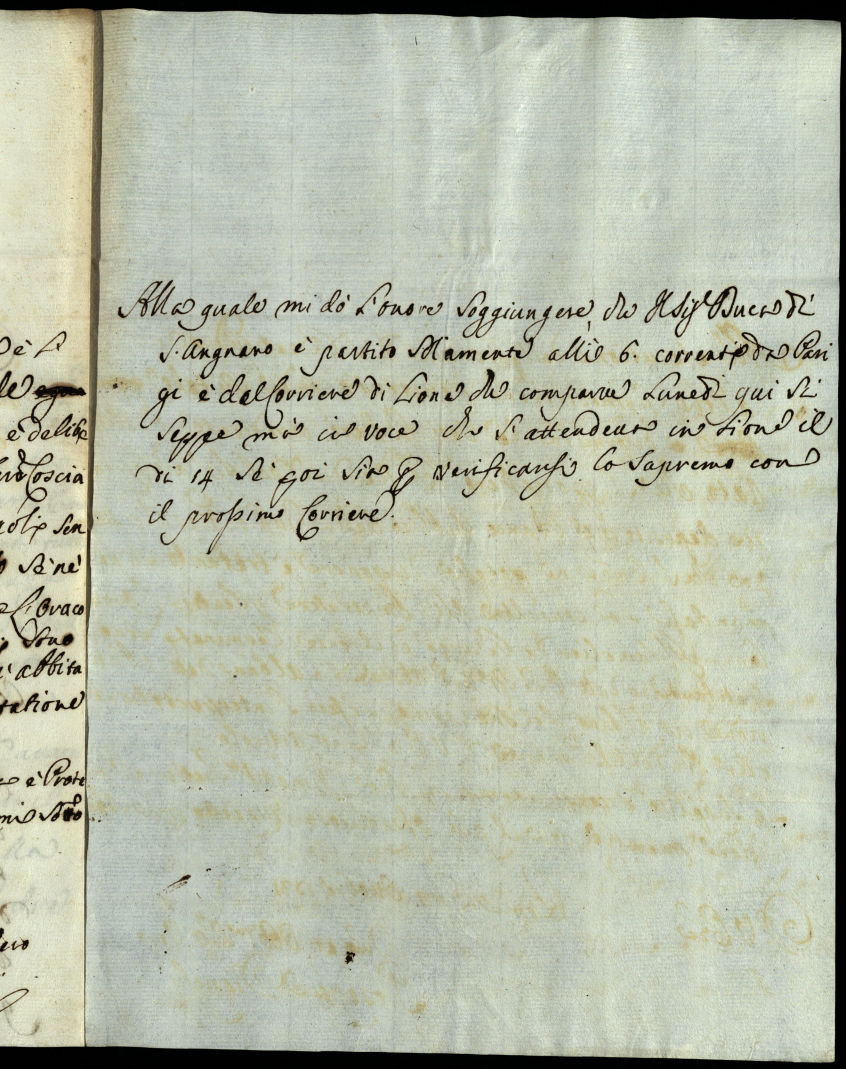 è
è delibe
Coscia
Sen
sè nè
Oraco
abbita
tatione
è Prote
Alla quale mi dò l'onore soggiungere che Il Sig.r Duca di
S. Angnano è partito solamente alli 6. corrente da Pari
gi è dal Corriere di Lione che comparve Lunedì qui si
seppe mà in voce che s'attendeva in Lione il
di 14 sè poi sia p verificarsi lo sapremo con
il prossimo Corriere.